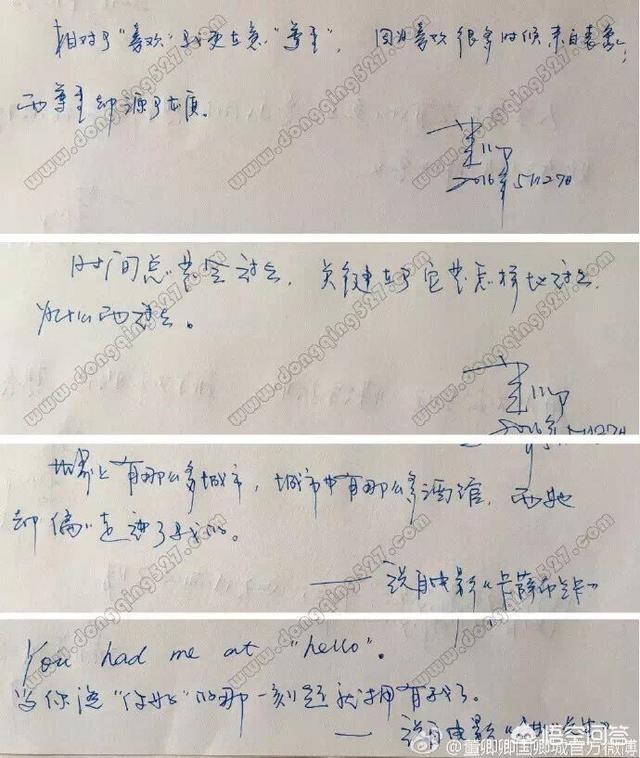 相对于"喜欢"我更在意"尊重"，因为喜欢很多时候来自表象，
而尊重却源于本质。
董卿
2016年5月27日
时间总会过去，关键在于它要怎样地过去，
为什么而过去。
董卿
2016年5月27日
世界上有那么多城市，城市中有那么多酒馆，而她
却偏偏走进了我的。
—— 说自电影《卡萨布兰卡》
You had me at "hello".
当你说"你好"的那一刻起就拥有我了。
—— 说自电影
悟空问答
@董卿卿国卿城官方微博
www.dongqing527.com